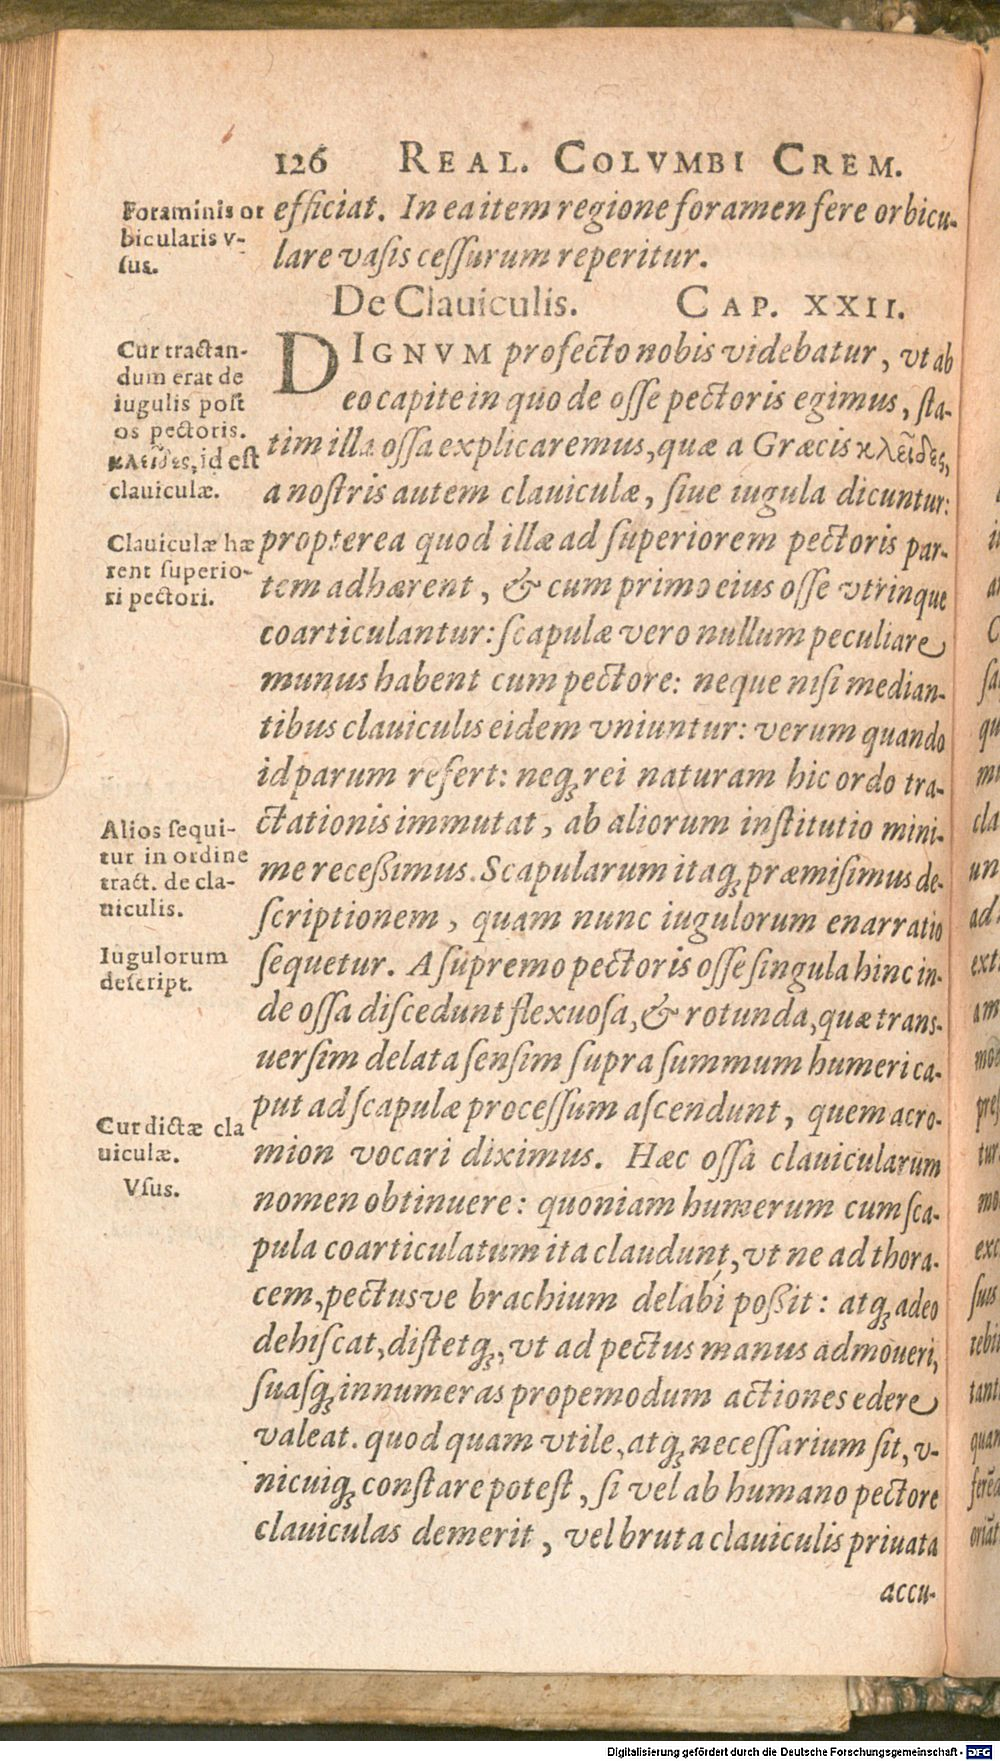 126 REAL. COLVMBI CREM.
Foraminis or
bicularis v-
sus.
efficiat. In ea item regione foramen fere orbicu-
lare vasis cessurum reperitur.
De Clauiculis. CAP. XXII.
Cur tractan-
dum erat de
iugulis post
os pectoris.
κλεῖδες, id est
clauiculæ.
Clauiculæ hæ
rent superio-
ri pectori.
DIGNVM profecto nobis videbatur, vt ab
eo capite in quo de osse pectoris egimus, sta-
tim illa ossa explicaremus, quæ a Græcis κλεῖδες,
a nostris autem clauiculæ, siue iugula dicuntur:
propterea quod illæ ad superiorem pectoris par-
tem adhærent, & cum primo eius osse vtrinque
coarticulantur: scapulæ vero nullum peculiare
munus habent cum pectore: neque nisi median-
tibus clauiculis eidem vniuntur: verum quando
id parum refert: neq; rei naturam hic ordo tra-
Alios sequi-
tur in ordine
tract. de cla-
uiculis.
Iugulorum
descript.
ctationis immutat, ab aliorum institutio mini-
me receßimus. Scapularum itaq; præmisimus de-
scriptionem, quam nunc iugulorum enarratio
sequetur. A supremo pectoris osse singula hinc in-
de ossa discedunt flexuosa, & rotunda, quæ trans-
uersim delata sensim supra summum humeri ca-
put ad scapulæ processum ascendunt, quem acro-
Cur dictæ cla
uiculæ.
Vsus.
mion vocari diximus. Hæc ossa clauicularum
nomen obtinuere: quoniam humerum cum sca-
pula coarticulatum ita claudunt, vt ne ad thora-
cem, pectusve brachium delabi poßit: atq; adeo
dehiscat, distetq;, vt ad pectus manus admoueri,
suasq; innumeras propemodum actiones edere
valeat. quod quam vtile, atq; necessarium sit, v-
nicuiq; constare potest, si vel ab humano pectore
clauiculas demerit, vel bruta clauiculis priuata
accu-
Digitalisierung gefördert durch die Deutsche Forschungsgemeinschaft - DFG